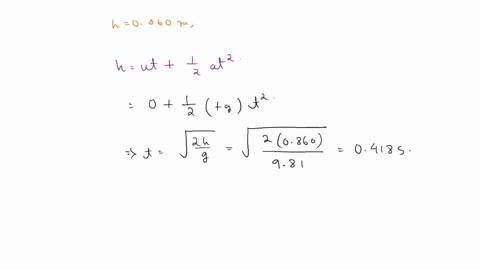 h=0.060 m,
h = ut + 1/2 at².
= 0 + 1/2 (+g) t².
⇒ t = √(2h/g) = √(2(0.860)/9.81) = 0.418 s.